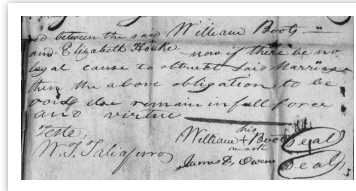 ed between the said William Boots
and Elizabeth Houke now if there be no
legal cause to obstruct said Marriage
then the above obligation to be
void else remain in full force
and virtue
Teste, his
William + Boots Seal
mark
W. T. Taliaferro James D. Owens Seal